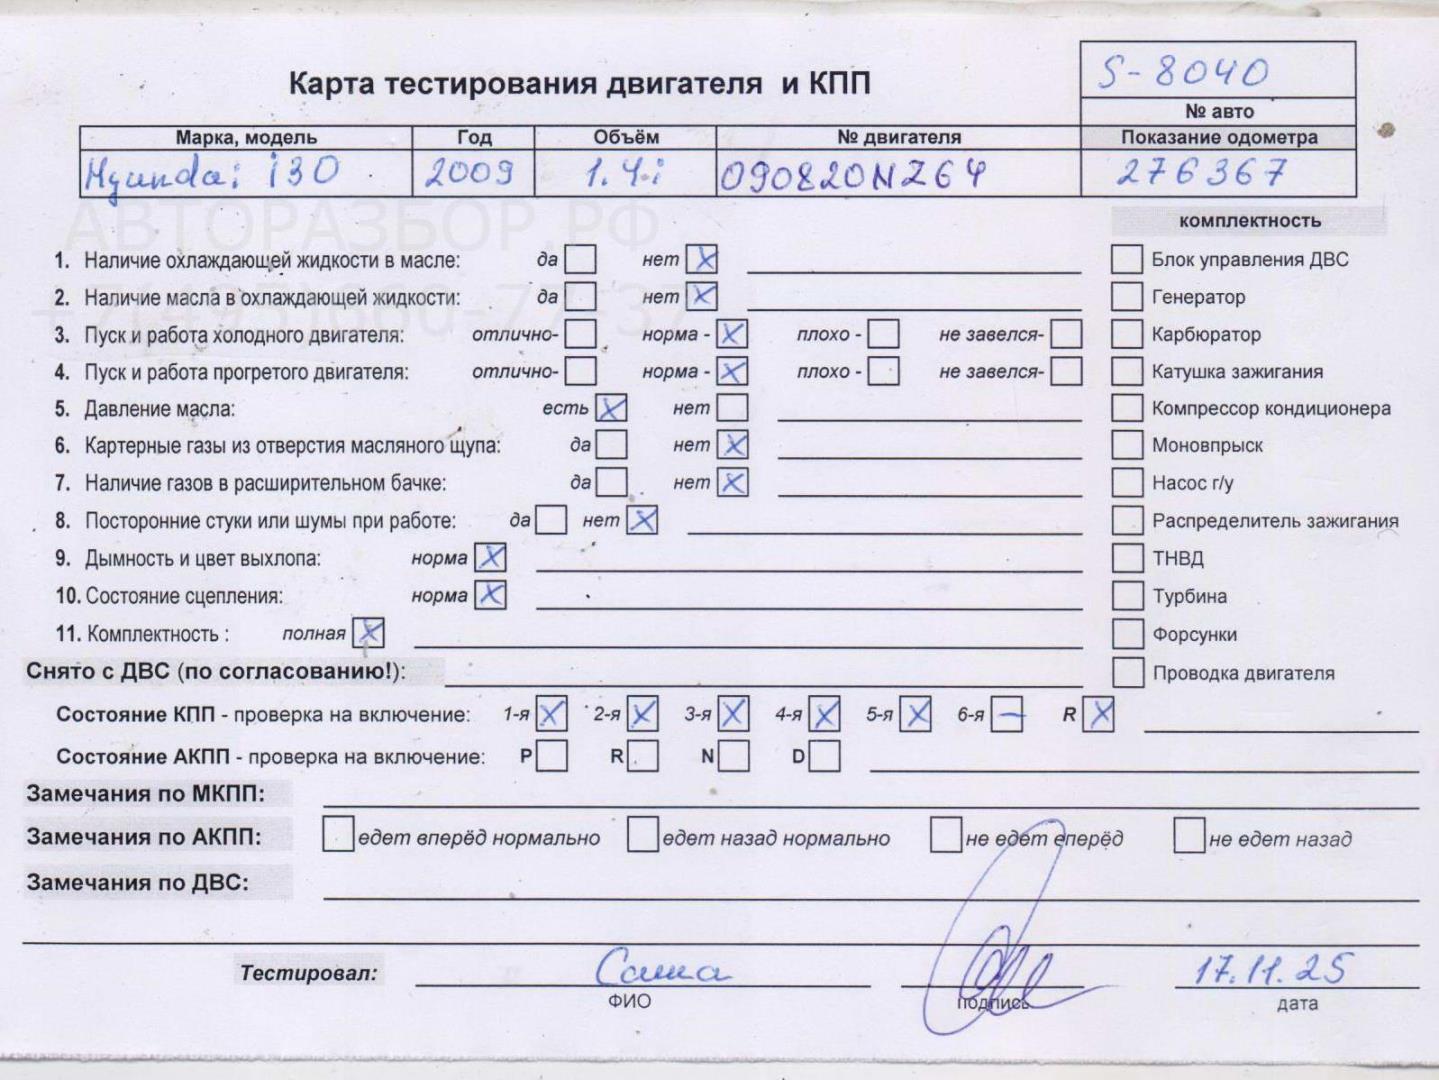 S-8040
Карта тестирования двигателя и КПП
№ авто
Марка, модель Год Объём № двигателя Показание одометра
Hyundai i30 2009 1.4i 090820NZ64 276367
АВТОРАЗБОР.РФ
+7(495)660-77-37
комплектность
1. Наличие охлаждающей жидкости в масле: да нет X Блок управления ДВС
2. Наличие масла в охлаждающей жидкости: да нет X Генератор
3. Пуск и работа холодного двигателя: отлично- норма - X плохо - не завелся- Карбюратор
4. Пуск и работа прогретого двигателя: отлично- норма - X плохо - не завелся- Катушка зажигания
5. Давление масла: есть X нет Компрессор кондиционера
6. Картерные газы из отверстия масляного щупа: да нет X Моновпрыск
7. Наличие газов в расширительном бачке: да нет X Насос г/у
8. Посторонние стуки или шумы при работе: да нет X Распределитель зажигания
9. Дымность и цвет выхлопа: норма X ТНВД
10. Состояние сцепления: норма X Турбина
11. Комплектность : полная X Форсунки
Снято с ДВС (по согласованию!): Проводка двигателя
Состояние КПП - проверка на включение: 1-я X 2-я X 3-я X 4-я X 5-я X 6-я — R X
Состояние АКПП - проверка на включение: P R N D
Замечания по МКПП:
Замечания по АКПП: едет вперёд нормально едет назад нормально не едет вперёд не едет назад
Замечания по ДВС:
Тестировал: Саша 17.11.25
ФИО подпись дата